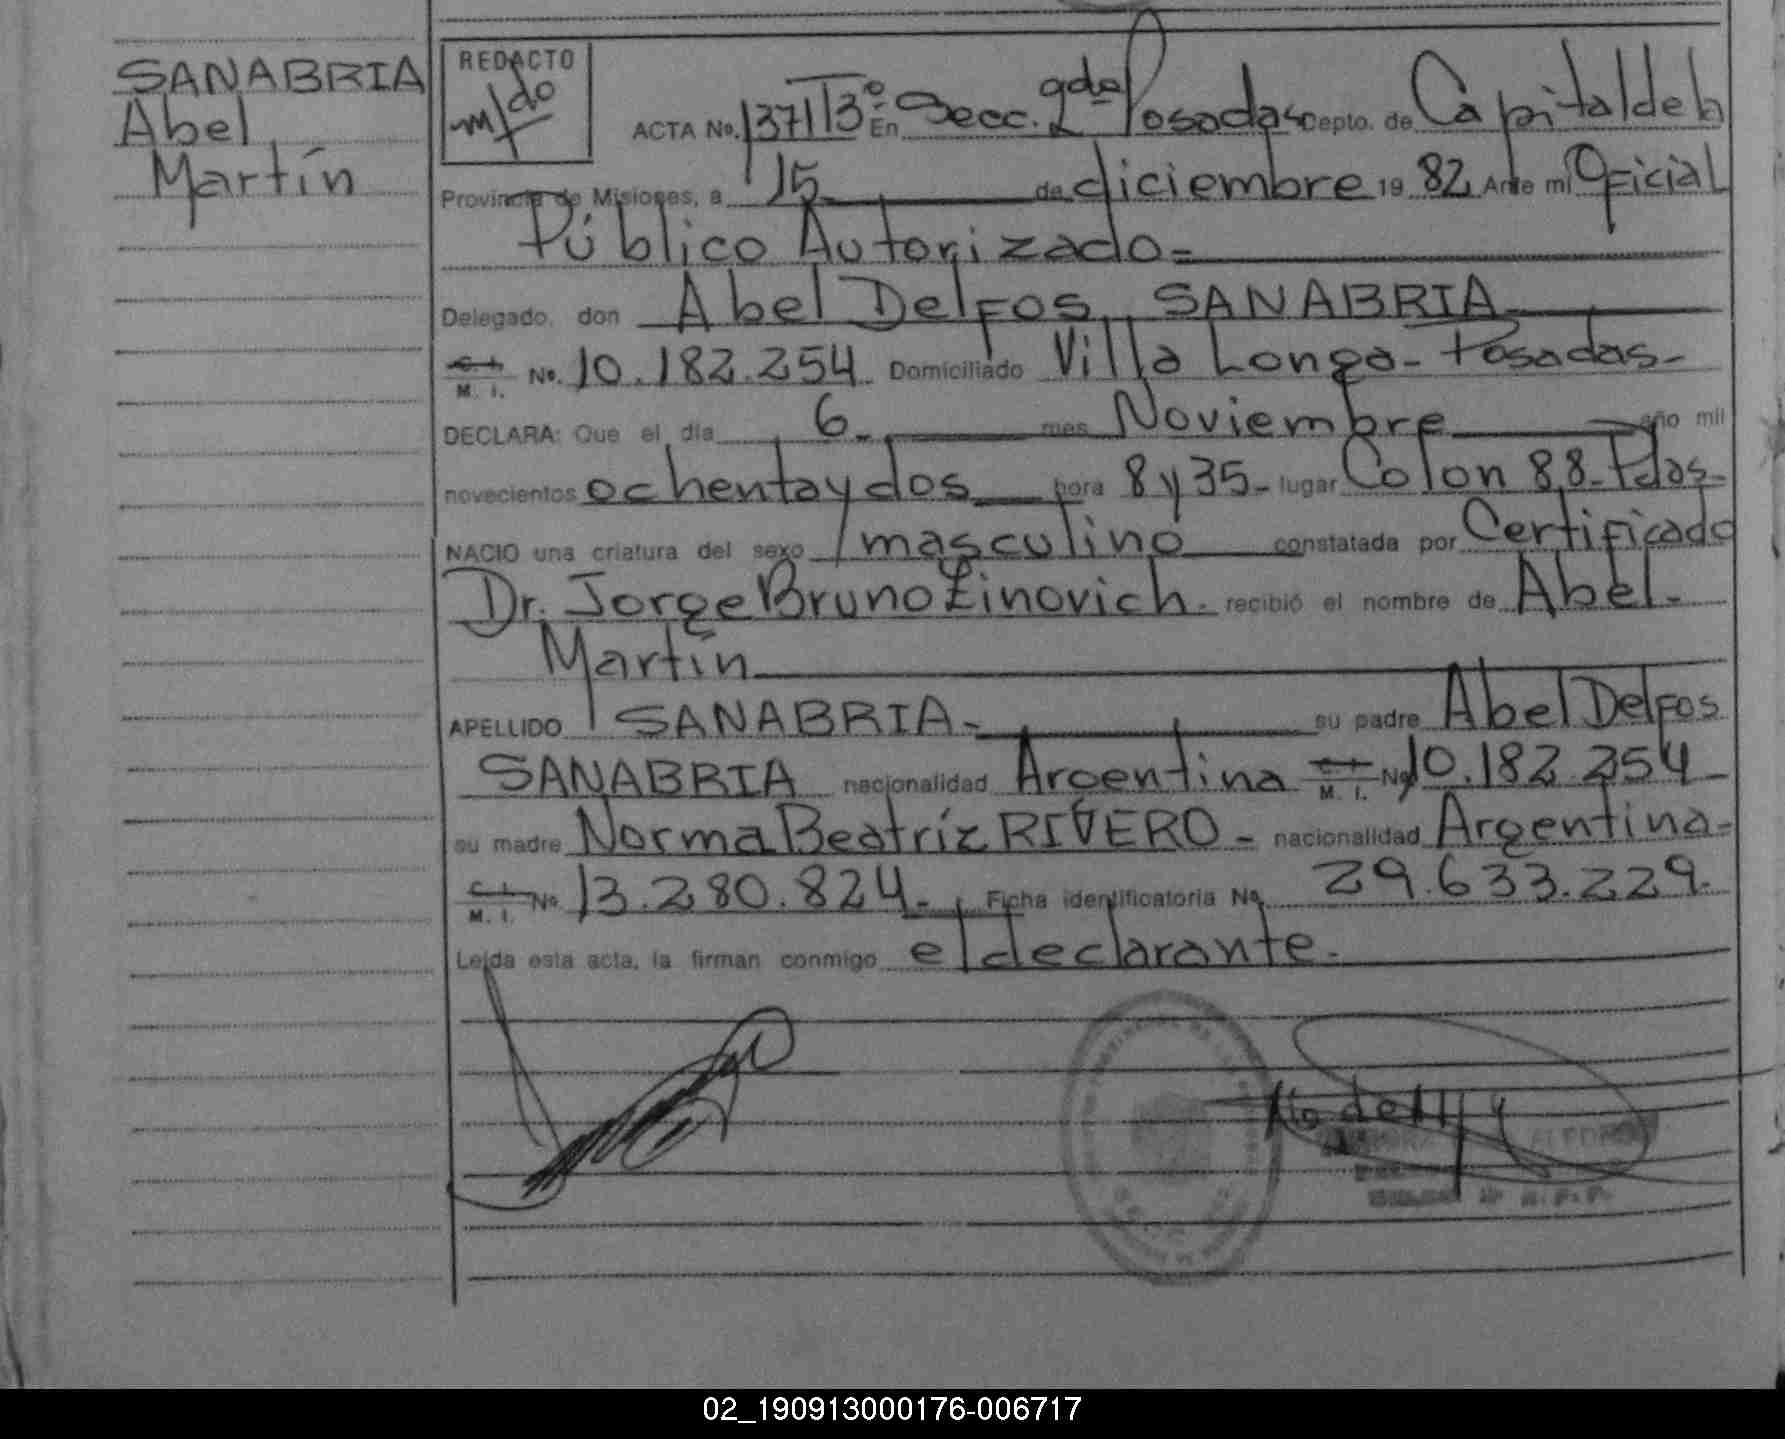 SANABRIA
Abel
Martín
REDACTO
ACTA No. 1371 T3º En Secc. 2da Posadas Depto. de Capital de la
Provincia de Misiones, a 15 de diciembre 19 82 Ante mi Oficial
Público Autorizado=
Delegado, don Abel Delfos SANABRIA
C. I. M. I. No. 10.182.254 Domiciliado Villa Longa - Posadas-
DECLARA: Que el dia 6 mes Noviembre año mil
novecientos ochenta y dos hora 8 y 35- lugar Colon 88- Pdas-
NACIO una criatura del sexo masculino constatada por Certificado
Dr. Jorge Bruno Zinovich. recibió el nombre de Abel.
Martín
APELLIDO SANABRIA- su padre Abel Delfos
SANABRIA nacionalidad Argentina C. I. M. I. No 10.182.254-
su madre Norma Beatríz RIVERO - nacionalidad Argentina-
C. I. M. I. No. 13.280.824- Ficha identificatoria No. 29.633.229.
Leida esta acta, la firman conmigo el declarante.
02_190913000176-006717